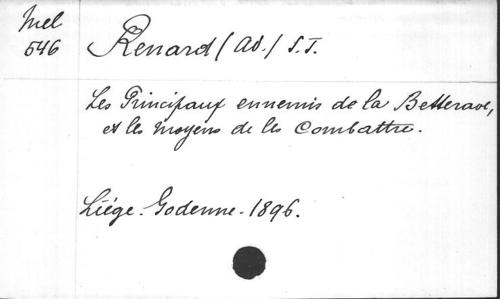 Mel
546
Renard (Ad.) S.J.
Les Principaux ennemis de la Betterave,
et les moyens de les combattre.
Liége. Godenne. 1896.